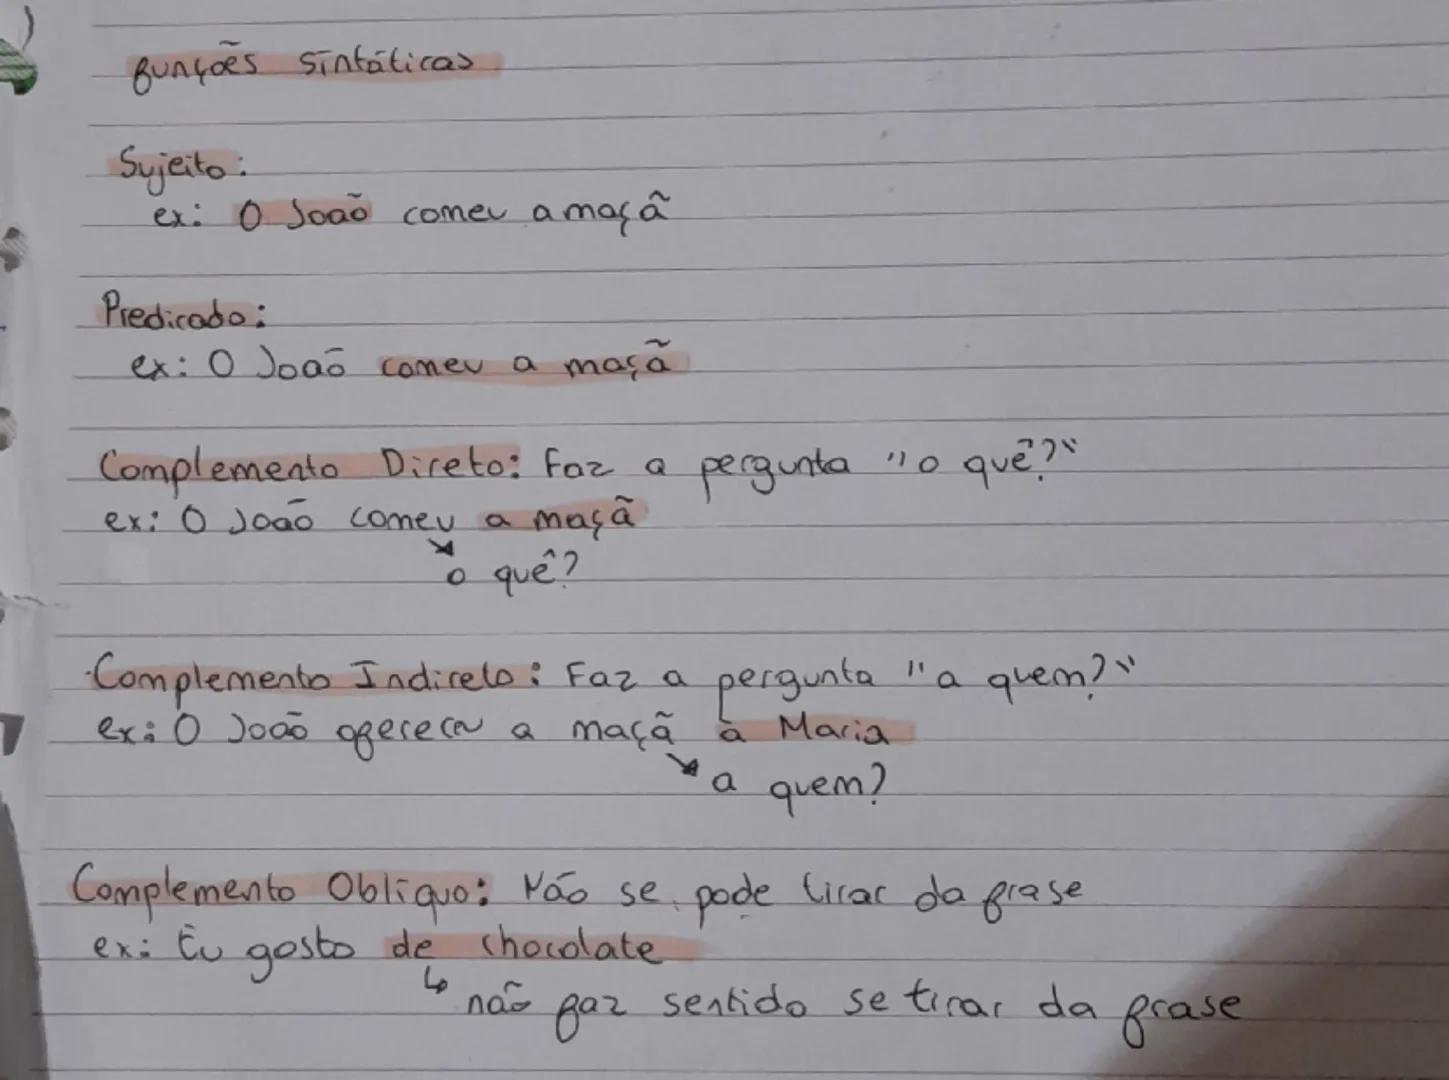 funções sintáticas
Sujeito:
ex: O João comeu a maçã
Predicado:
ex: O João comeu a maçã
Complemento Direto: Faz a pergunta "o quê?"
ex: O João comeu a maçã
o quê?
Complemento Indireto: Faz a pergunta "a quem?"
ex: O João ofereceu a maçã à Maria
a quem?
Complemento Oblíquo: Não se pode tirar da frase
ex: Eu gosto de chocolate
não faz sentido se tirar da frase